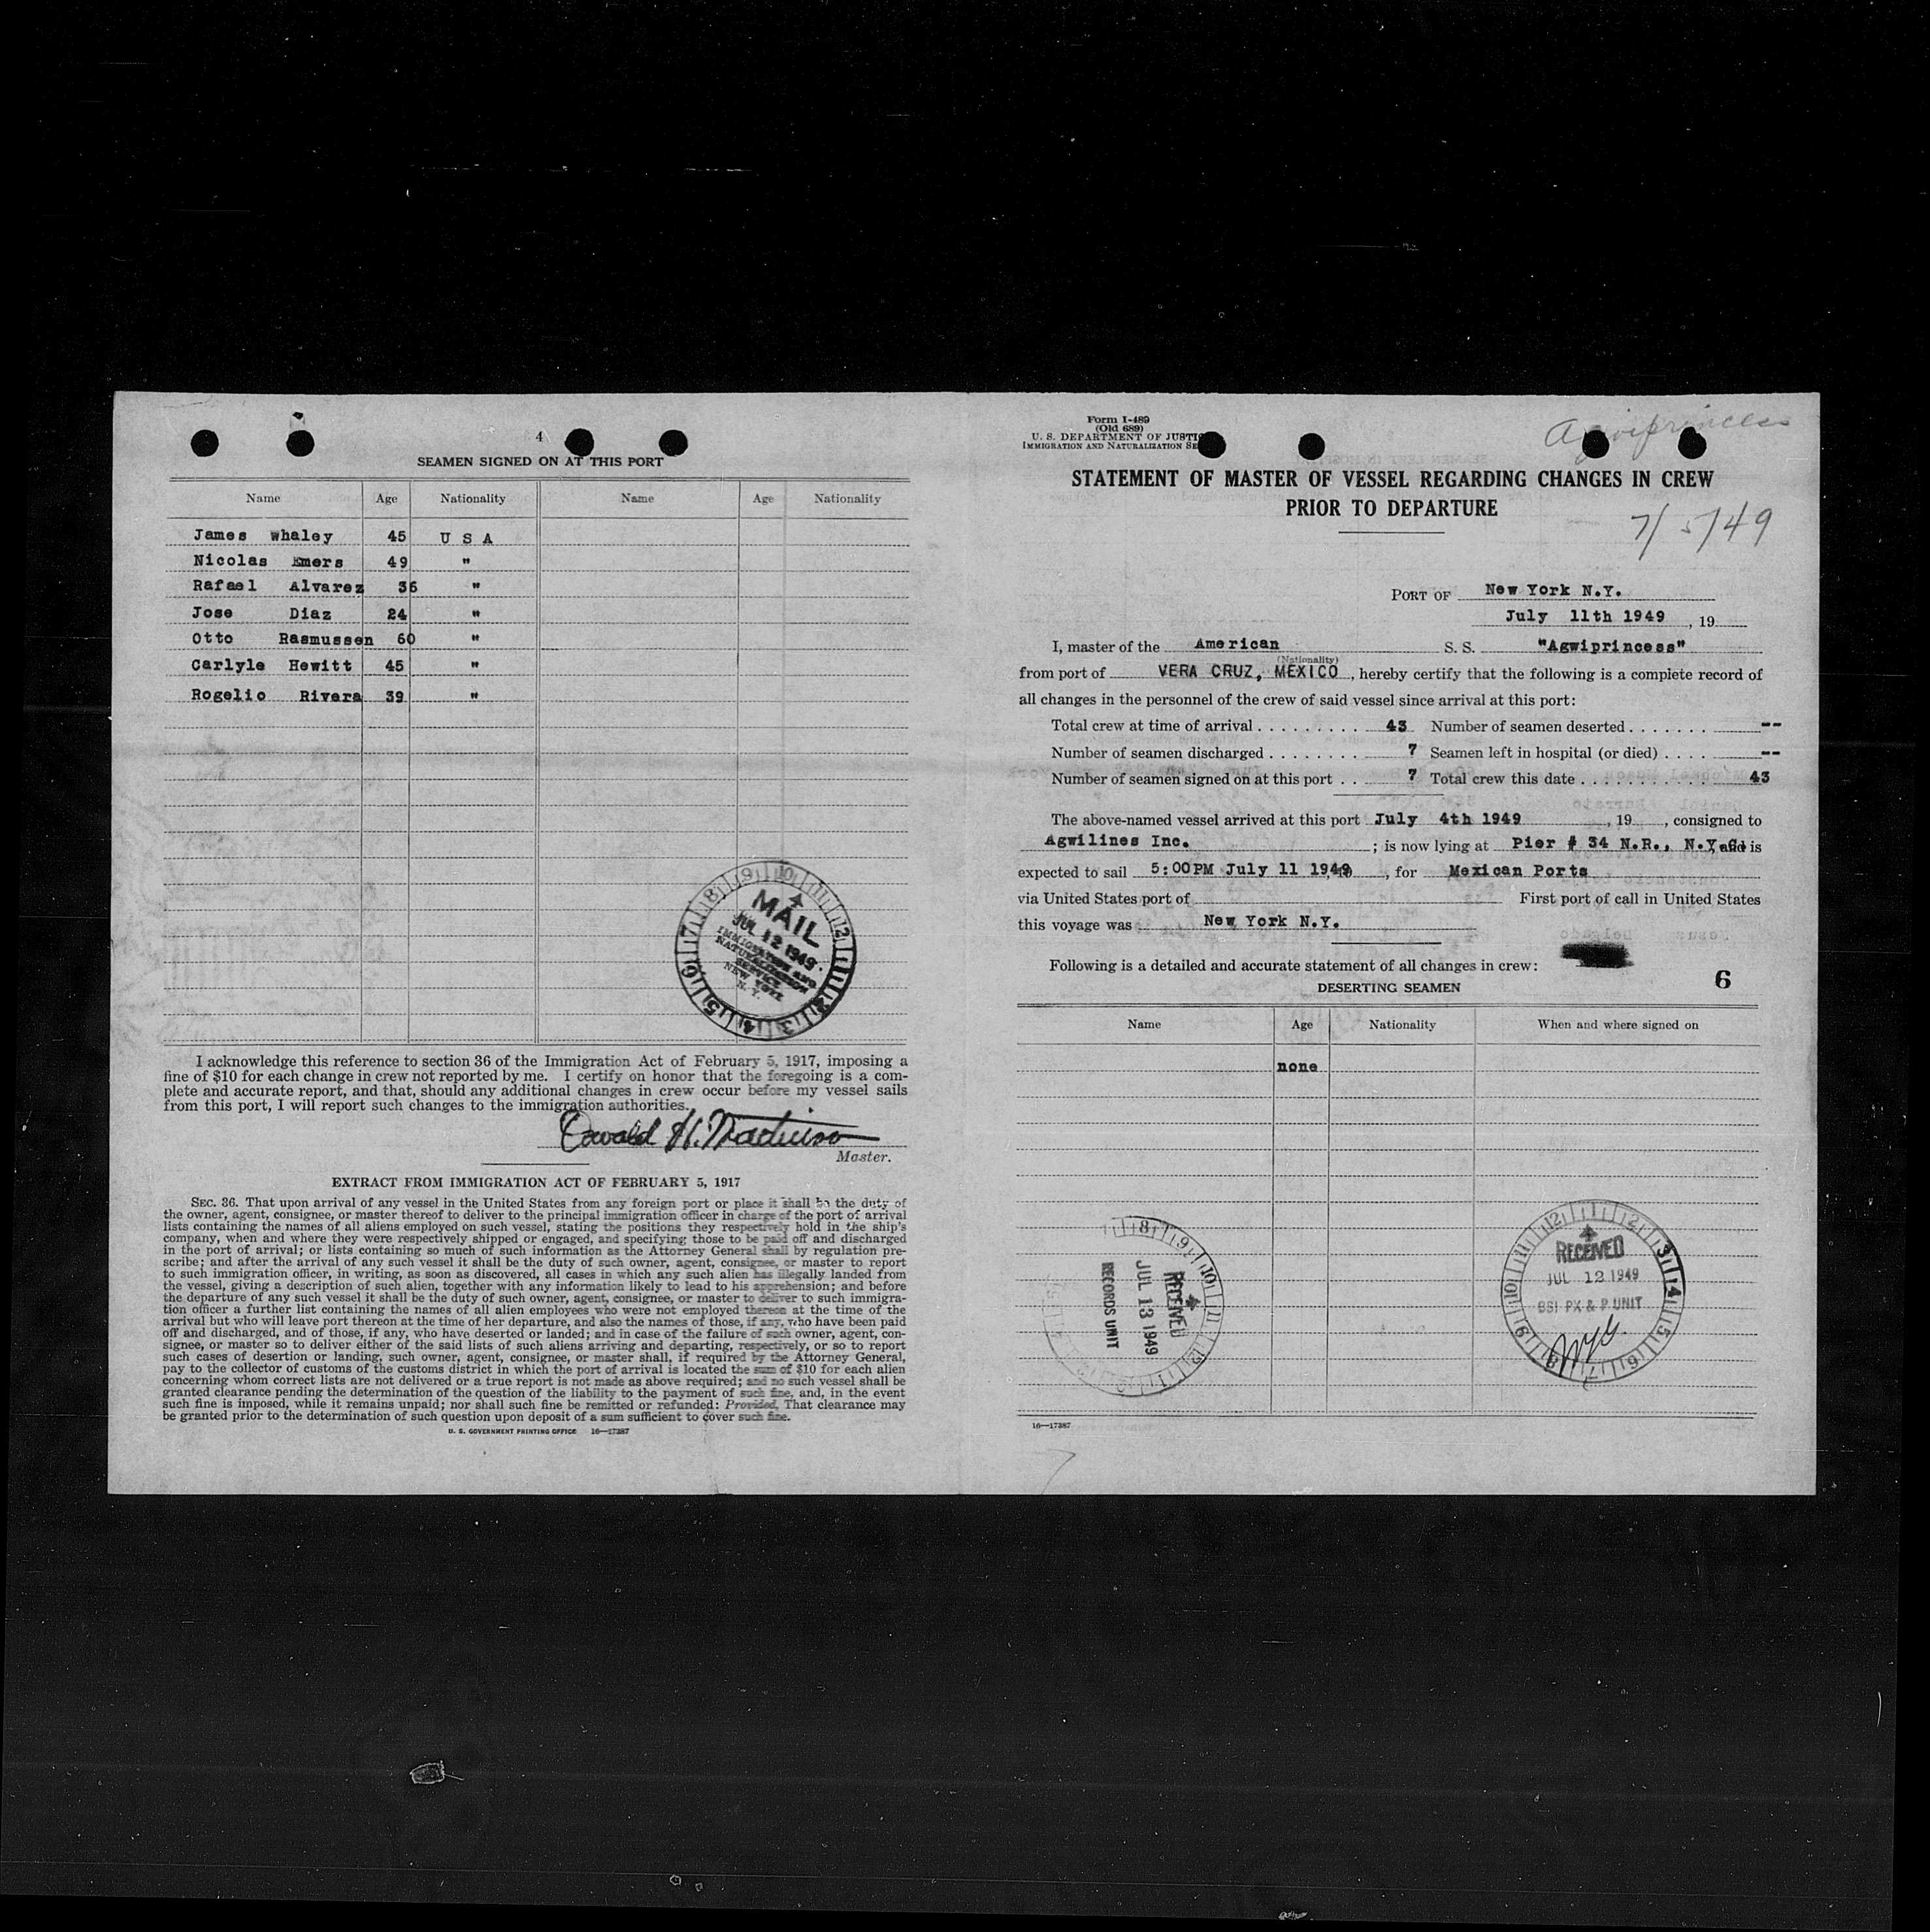 4
SEAMEN SIGNED ON AT THIS PORT
Name Age Nationality Name Age Nationality
James whaley 45 U S A
Nicolas Emers 49 "
Rafael Alvarez 36 "
Jose Diaz 24 "
Otto Rasmussen 60 "
Carlyle Hewitt 45 "
Rogelio Rivera 39 "
MAIL
JUL 12 1949
IMMIGRATION AND
NATURALIZATION
SERVICE
NEW YORK
N. Y.
I acknowledge this reference to section 36 of the Immigration Act of February 5, 1917, imposing a
fine of $10 for each change in crew not reported by me. I certify on honor that the foregoing is a com-
plete and accurate report, and that, should any additional changes in crew occur before my vessel sails
from this port, I will report such changes to the immigration authorities.
H.
Master.
EXTRACT FROM IMMIGRATION ACT OF FEBRUARY 5, 1917
SEC. 36. That upon arrival of any vessel in the United States from any foreign port or place it shall be the duty of
the owner, agent, consignee, or master thereof to deliver to the principal immigration officer in charge of the port of arrival
lists containing the names of all aliens employed on such vessel, stating the positions they respectively hold in the ship's
company, when and where they were respectively shipped or engaged, and specifying those to be paid off and discharged
in the port of arrival; or lists containing so much of such information as the Attorney General shall by regulation pre-
scribe; and after the arrival of any such vessel it shall be the duty of such owner, agent, consignee, or master to report
to such immigration officer, in writing, as soon as discovered, all cases in which any such alien has illegally landed from
the vessel, giving a description of such alien, together with any information likely to lead to his apprehension; and before
the departure of any such vessel it shall be the duty of such owner, agent, consignee, or master to deliver to such immigra-
tion officer a further list containing the names of all alien employees who were not employed thereon at the time of the
arrival but who will leave port thereon at the time of her departure, and also the names of those, if any, who have been paid
off and discharged, and of those, if any, who have deserted or landed; and in case of the failure of such owner, agent, con-
signee, or master so to deliver either of the said lists of such aliens arriving and departing, respectively, or so to report
such cases of desertion or landing, such owner, agent, consignee, or master shall, if required by the Attorney General,
pay to the collector of customs of the customs district in which the port of arrival is located the sum of $10 for each alien
concerning whom correct lists are not delivered or a true report is not made as above required; and no such vessel shall be
granted clearance pending the determination of the question of the liability to the payment of such fine, and, in the event
such fine is imposed, while it remains unpaid; nor shall such fine be remitted or refunded: Provided, That clearance may
be granted prior to the determination of such question upon deposit of a sum sufficient to cover such fine.
U. S. GOVERNMENT PRINTING OFFICE 16—17387
Form I-489
(Old 689)
U. S. DEPARTMENT OF JUSTI
IMMIGRATION AND NATURALIZATION SE
Agwiprincess
STATEMENT OF MASTER OF VESSEL REGARDING CHANGES IN CREW
PRIOR TO DEPARTURE
7/5/49
PORT OF New York N.Y.
July 11th 1949, 19
I, master of the American S. S. "Agwiprincess"
(Nationality)
from port of VERA CRUZ, MEXICO, hereby certify that the following is a complete record of
all changes in the personnel of the crew of said vessel since arrival at this port:
Total crew at time of arrival . . . . . . . . . 43 Number of seamen deserted . . . . . . . --
Number of seamen discharged . . . . . . . . 7 Seamen left in hospital (or died) . . . . --
Number of seamen signed on at this port . . 7 Total crew this date . . . . . . . . . . . 43
The above-named vessel arrived at this port July 4th 1949, 19 , consigned to
Agwilines Inc. ; is now lying at Pier # 34 N.R., N.Y.C. and is
expected to sail 5:00PM July 11 1949, for Mexican Ports
via United States port of First port of call in United States
this voyage was New York N.Y.
Following is a detailed and accurate statement of all changes in crew:
6
DESERTING SEAMEN
Name Age Nationality When and where signed on
none
RECEIVED
JUL 13 1949
RECORDS UNIT
RECEIVED
JUL 12 1949
BSI PX & P UNIT
16—17387